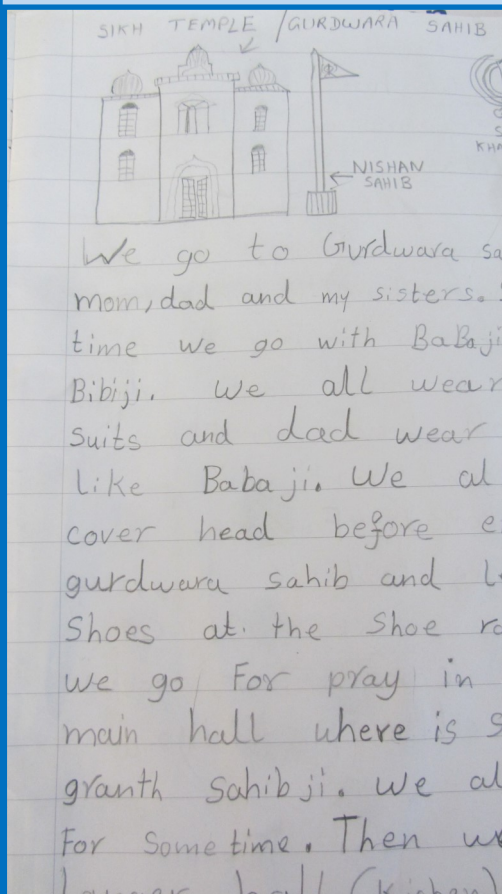 SIKH TEMPLE / GURDWARA SAHIB
NISHAN
SAHIB
We go to Gurdwara sa
mom, dad and my sisters.
time we go with BaBaji
Bibiji. We all wear
Suits and dad wear
like Babaji. We al
cover head before e
gurdwara sahib and l
Shoes at. the Shoe ro
we go For pray in
main hall where is S
granth Sahibji. We al
For Sometime. Then we